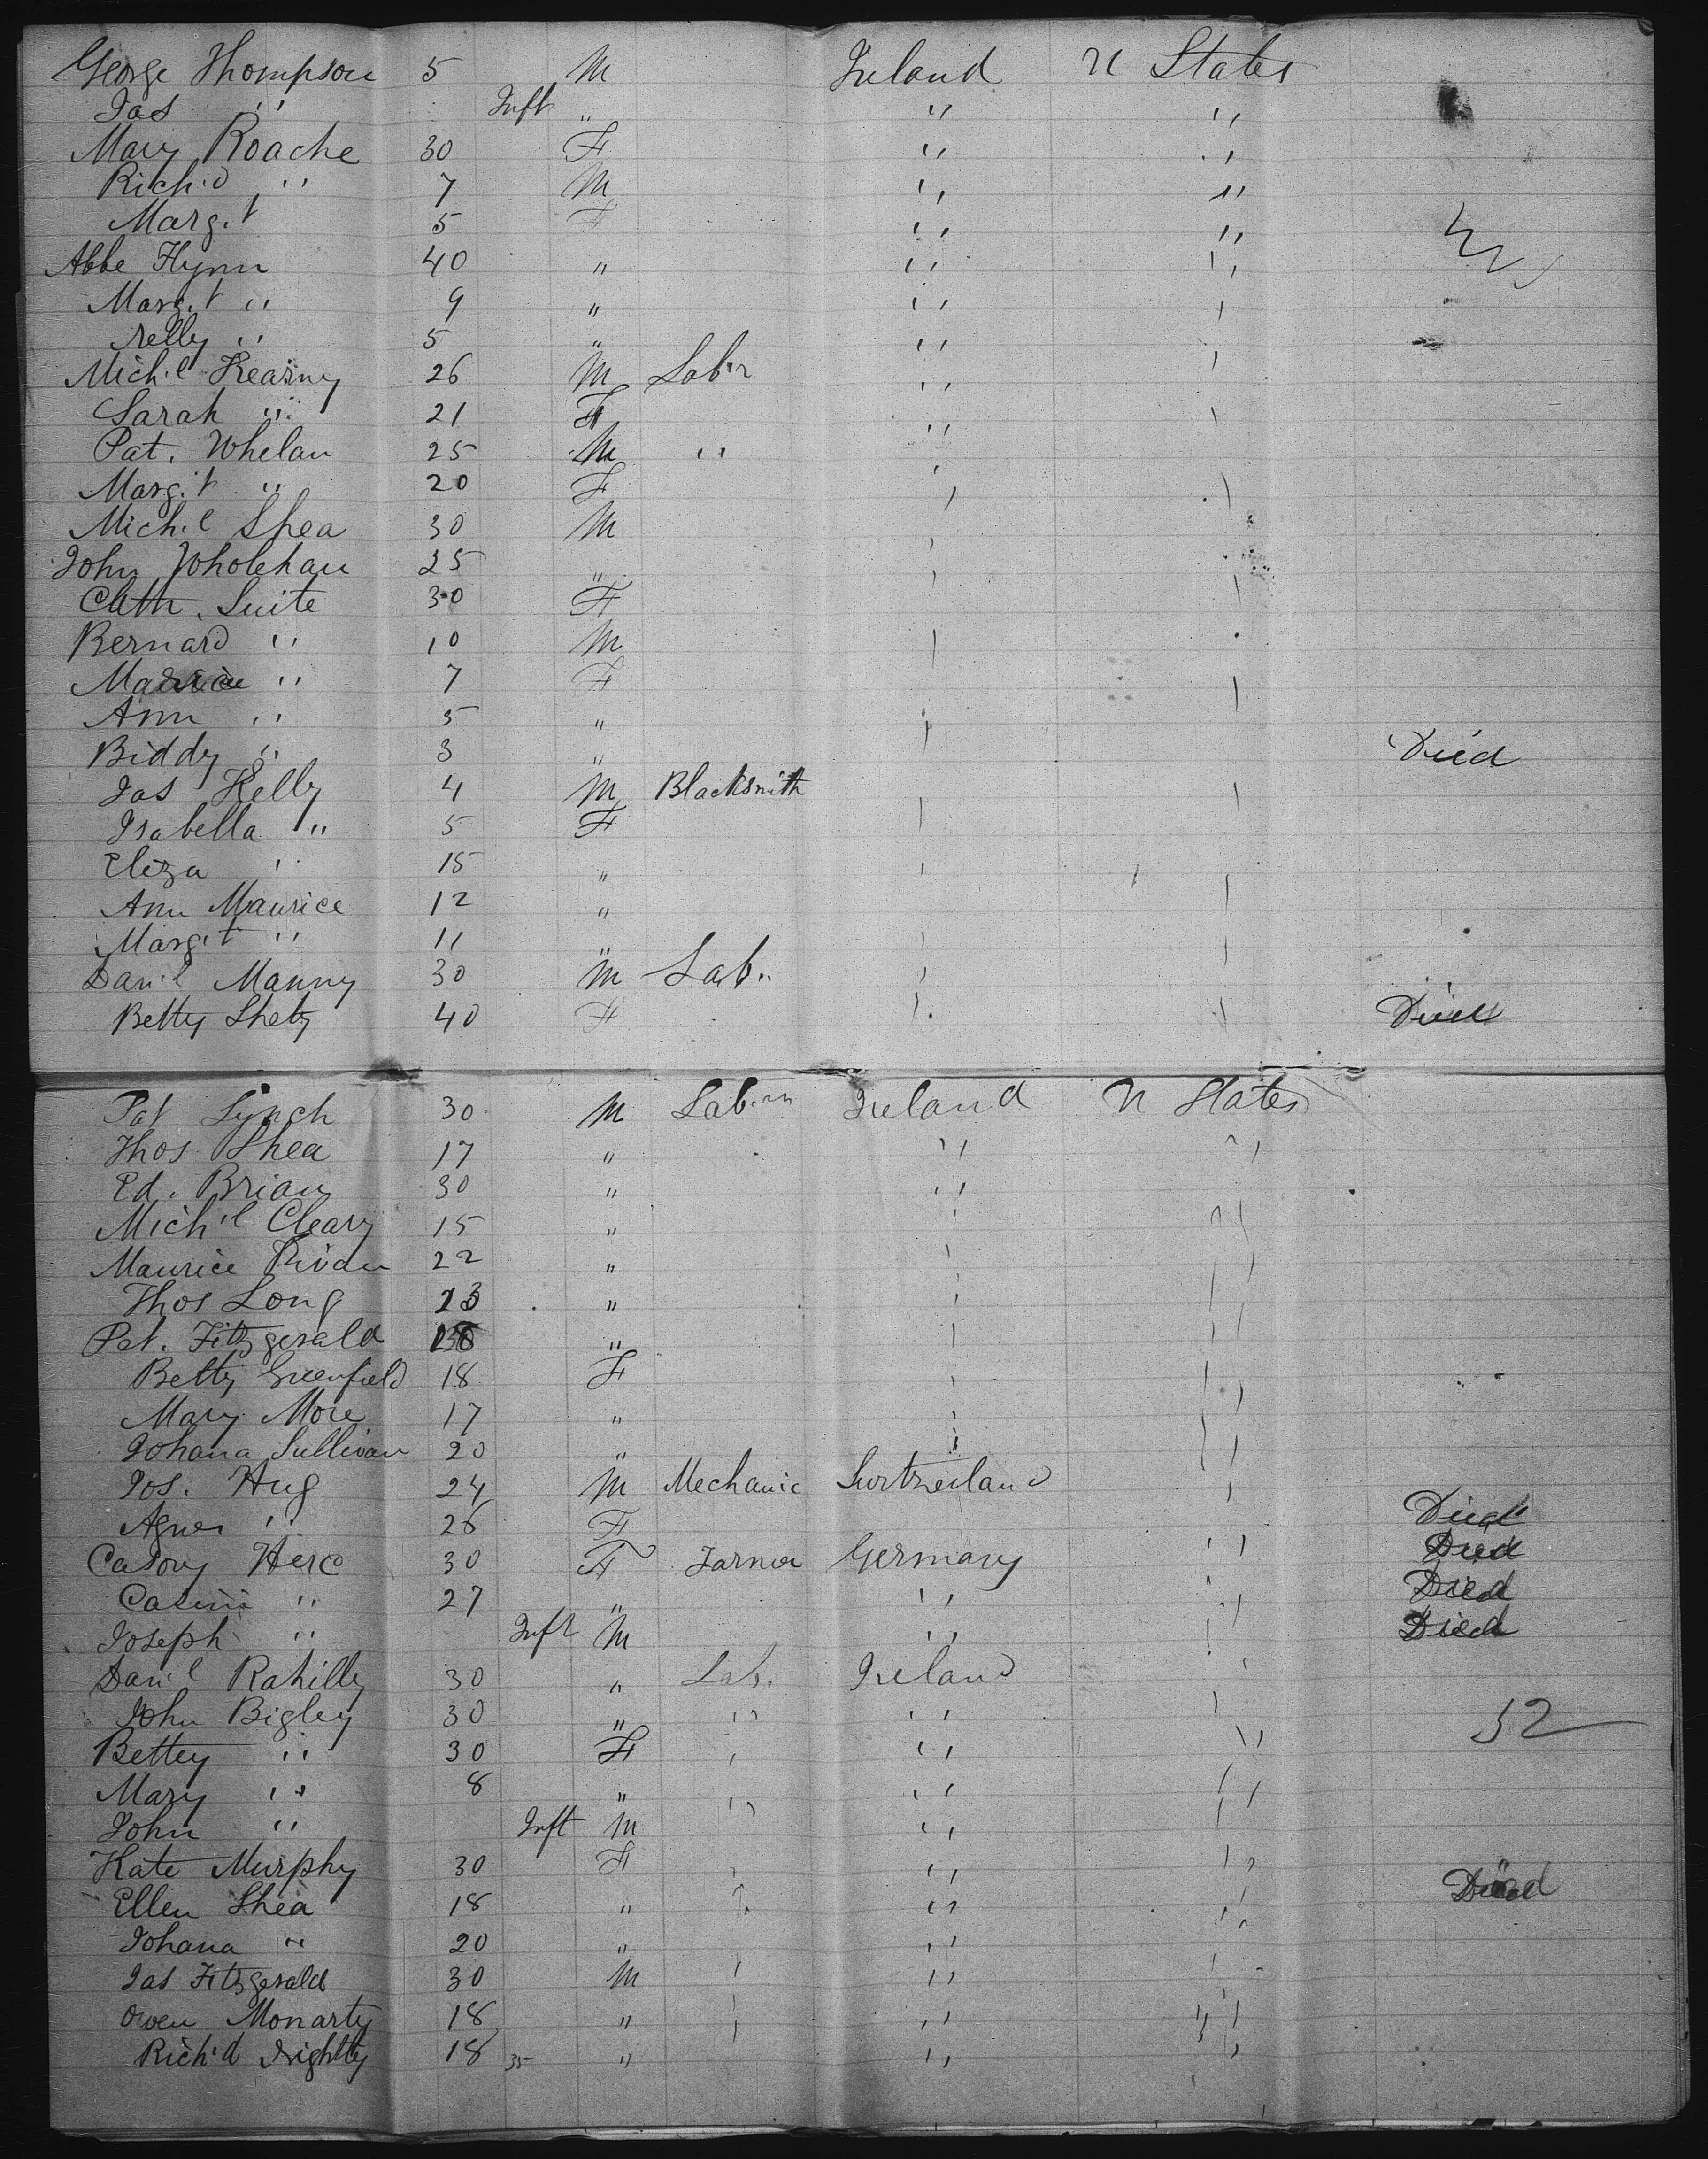 George Thompson 5 M Ireland U States
Jas " Inft " " "
Mary Roache 30 F " "
Rich.d " 7 M " "
Marg.t 5 F " "
Abbe Flynn 40 " " "
Marg.t " 9 " " "
Nelly " 5 " "
Mich.l Kearny 26 M Lab.r " "
Sarah " 21 F " "
Pat. Whelan 25 M " "
Marg.t " 20 F " "
Mich.l Shea 30 M
John Wholehan 25 "
Cath. Suite 30 F
Bernard " 10 M
7 F
Ann " 5 "
Biddy " 3 " Died
Jas Kelly 4 M Blacksmith
Isabella " 5 F
Eliza " 15 "
Ann Maurice 12 "
Marg.t " 11 "
Dan.l Manny 30 M Lab.
Betty 40 F Died
Pat Lynch 30 M Lab. Ireland U States
Thos Shea 17 " " "
Ed. Brian 30 " "
Mich'l Cleary 15 "
Maurice 22 "
Thos Long 23 "
Pat. Fitzgerald "
Betty Greenfield 18 F
Mary More 17 "
Johana Sullivan 20 "
Jos. Hug 24 M Mechanic Switzerland
Agnes " 26 F Died
Casovy Herc 30 F Farmer Germany " Died
Casini " 27 " " " Died
Joseph " Inft M " Died
Dan'l Rahilly 30 " Lab. Ireland
John Bigley 30 " " " 52
Bettey " 30 F " "
Mary " 8 " " "
John " Inft M " "
Kate Murphy 30 F " "
Ellen Shea 18 " " " Died
Johana " 20 " "
Jas Fitzgerald 30 M "
Owen Monarty 18 " " "
Rich'd 18 35 " " "